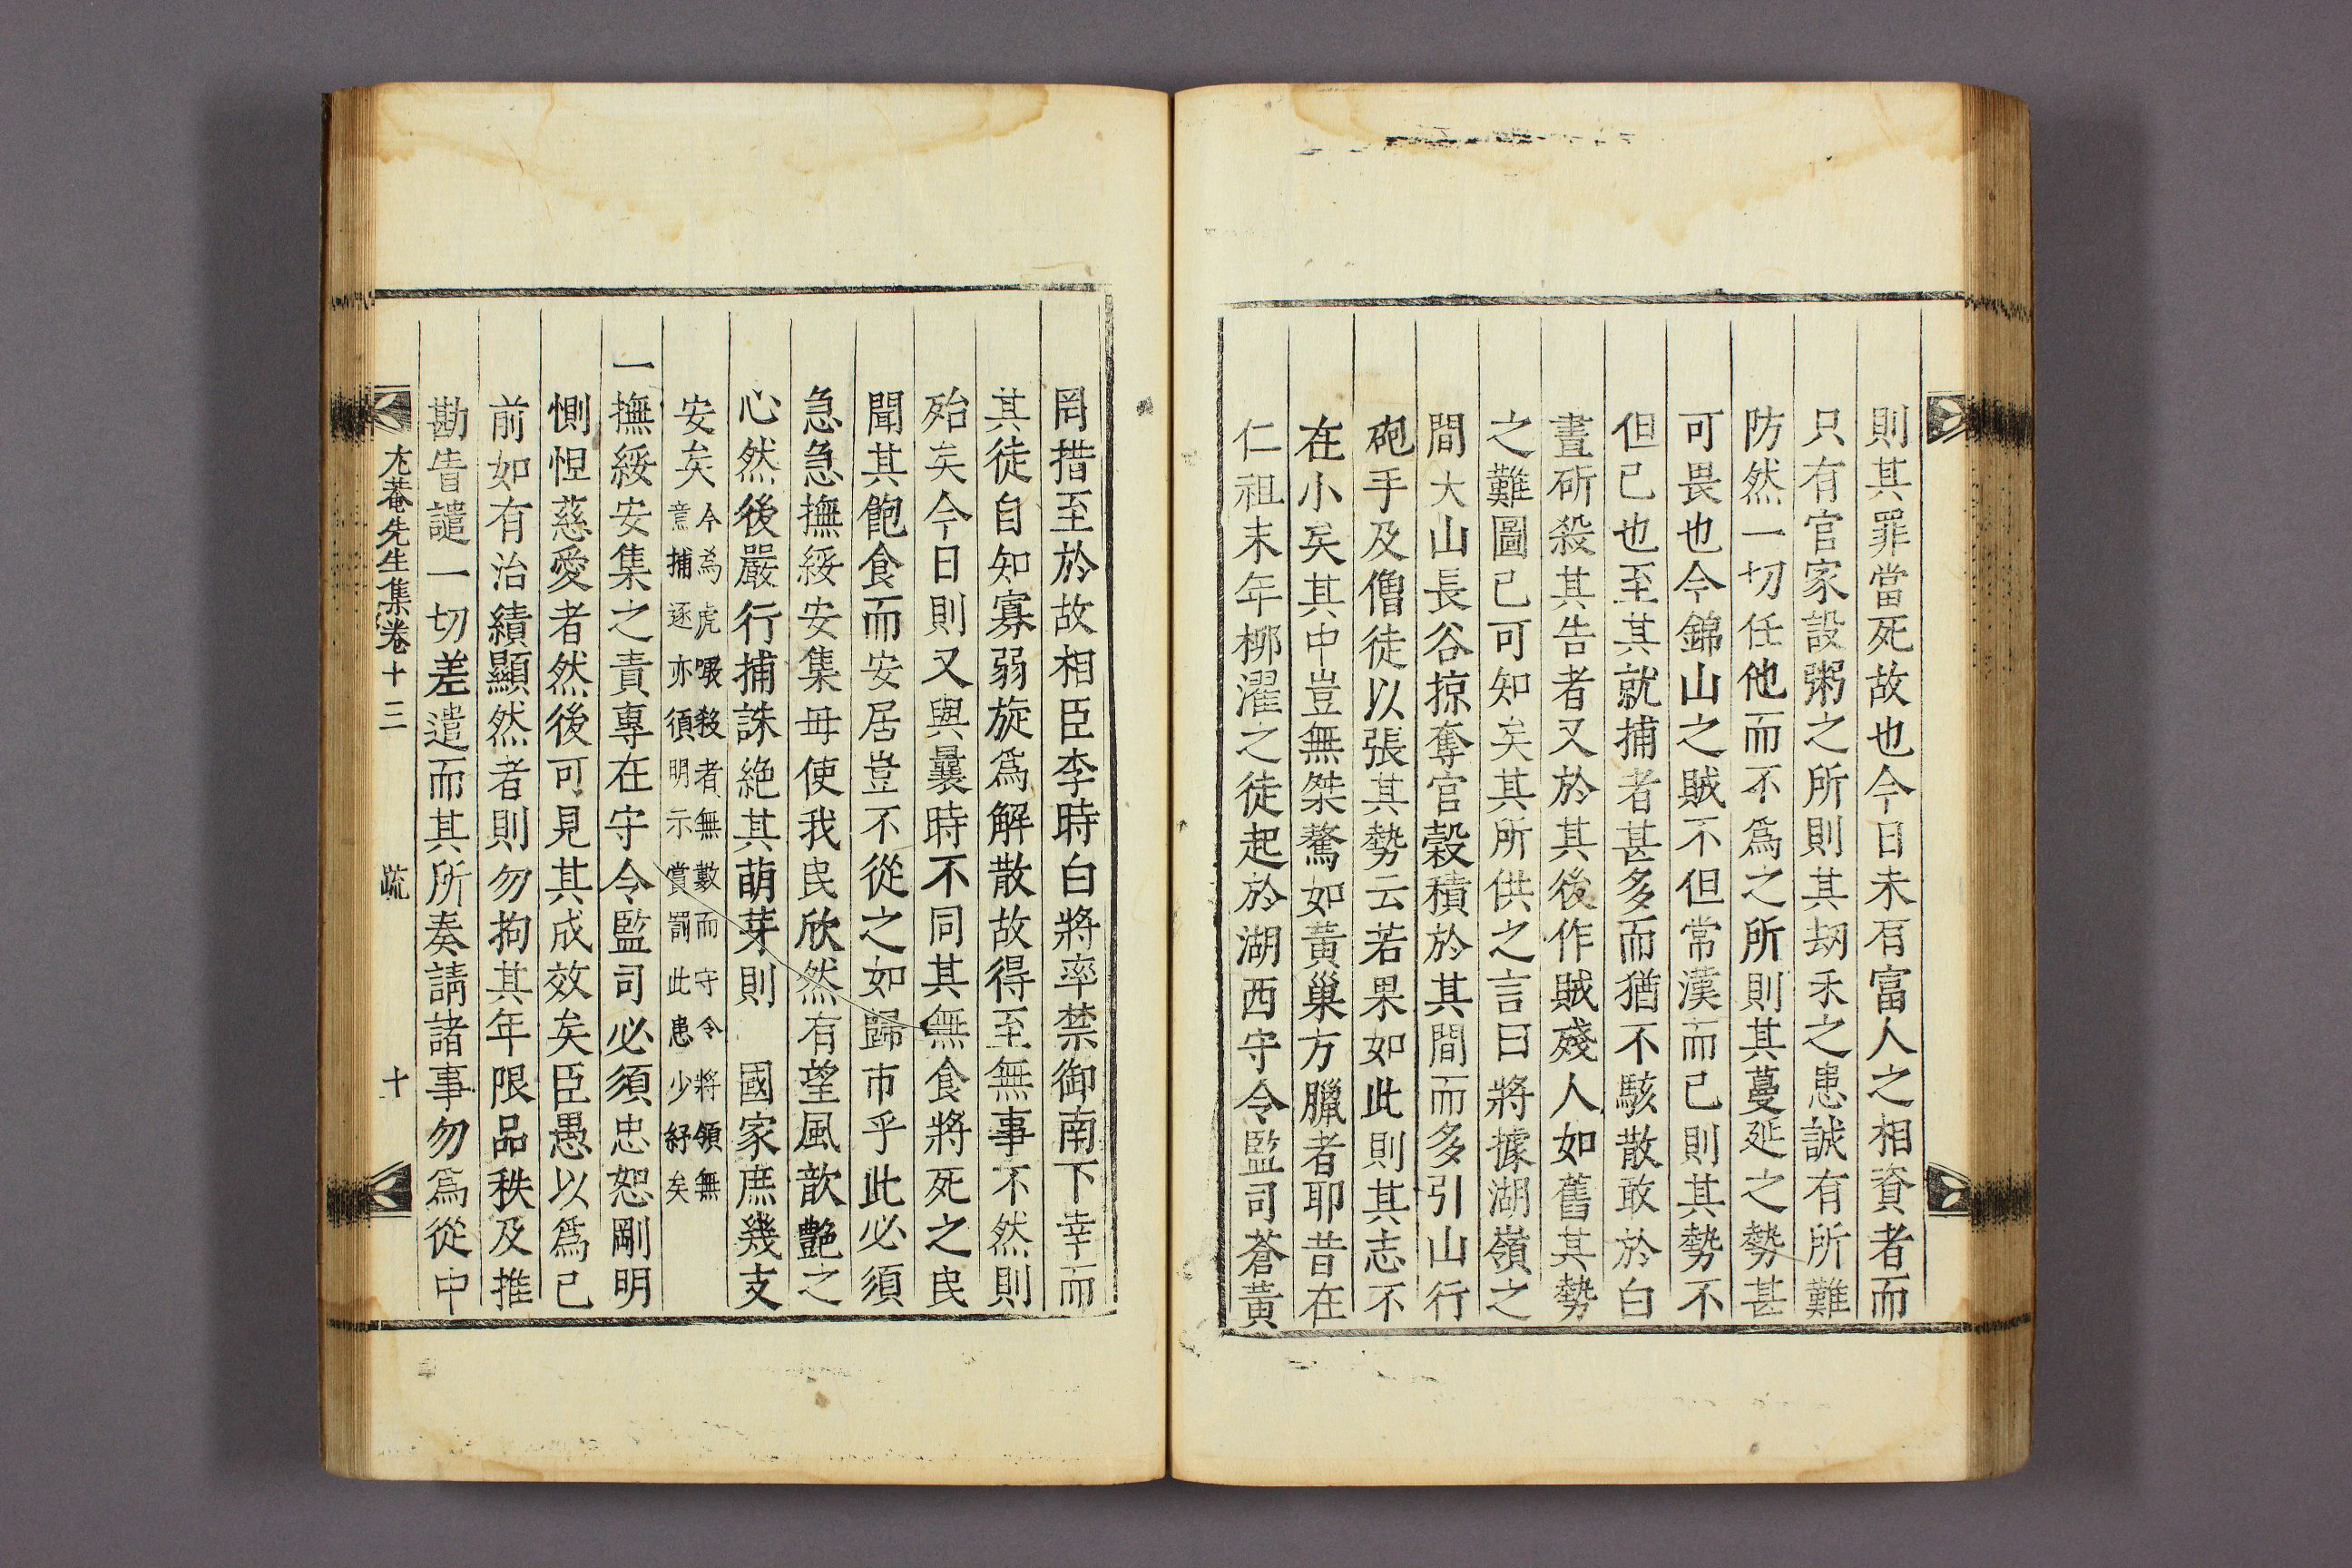 則其罪當死故也今日未有富人之相資者而
只有官家設粥之所則其刼禾之患誠有所難
防然一切任他而不爲之所則其蔓延之勢甚
可畏也今錦山之賊不但常漢而已則其勢不
但已也至其就捕者甚多而猶不駭散敢於白
晝斫殺其告者又於其後作賊殘人如舊其勢
之難圖已可知矣其所供之言曰將據湖嶺之
間大山長谷掠奪官穀積於其間而多引山行
砲手及僧徒以張其勢云若果如此則其志不
在小矣其中豈無桀驁如黃巢方臘者耶昔在
仁祖末年柳濯之徒起於湖西守令監司蒼黃
罔措至於故相臣李時白將率禁御南下幸而
其徒自知寡弱旋爲解散故得至無事不然則
殆矣今日則又與曩時不同其無食將死之民
聞其飽食而安居豈不從之如歸市乎此必須
急急撫綏安集毋使我民欣然有望風歆艶之
心然後嚴行捕誅絶其萌芽則 國家庶幾支
安矣今爲虎囕殺者無數而守令將領無
意捕逐亦須明示賞罰此患少紓矣
一撫綏安集之責專在守令監司必須忠恕剛明
惻怛慈愛者然後可見其成效矣臣愚以爲已
前如有治績顯然者則勿拘其年限品秩及推
勘眚譴一切差遣而其所奏請諸事勿爲從中
尤菴先生集卷十三 疏 十